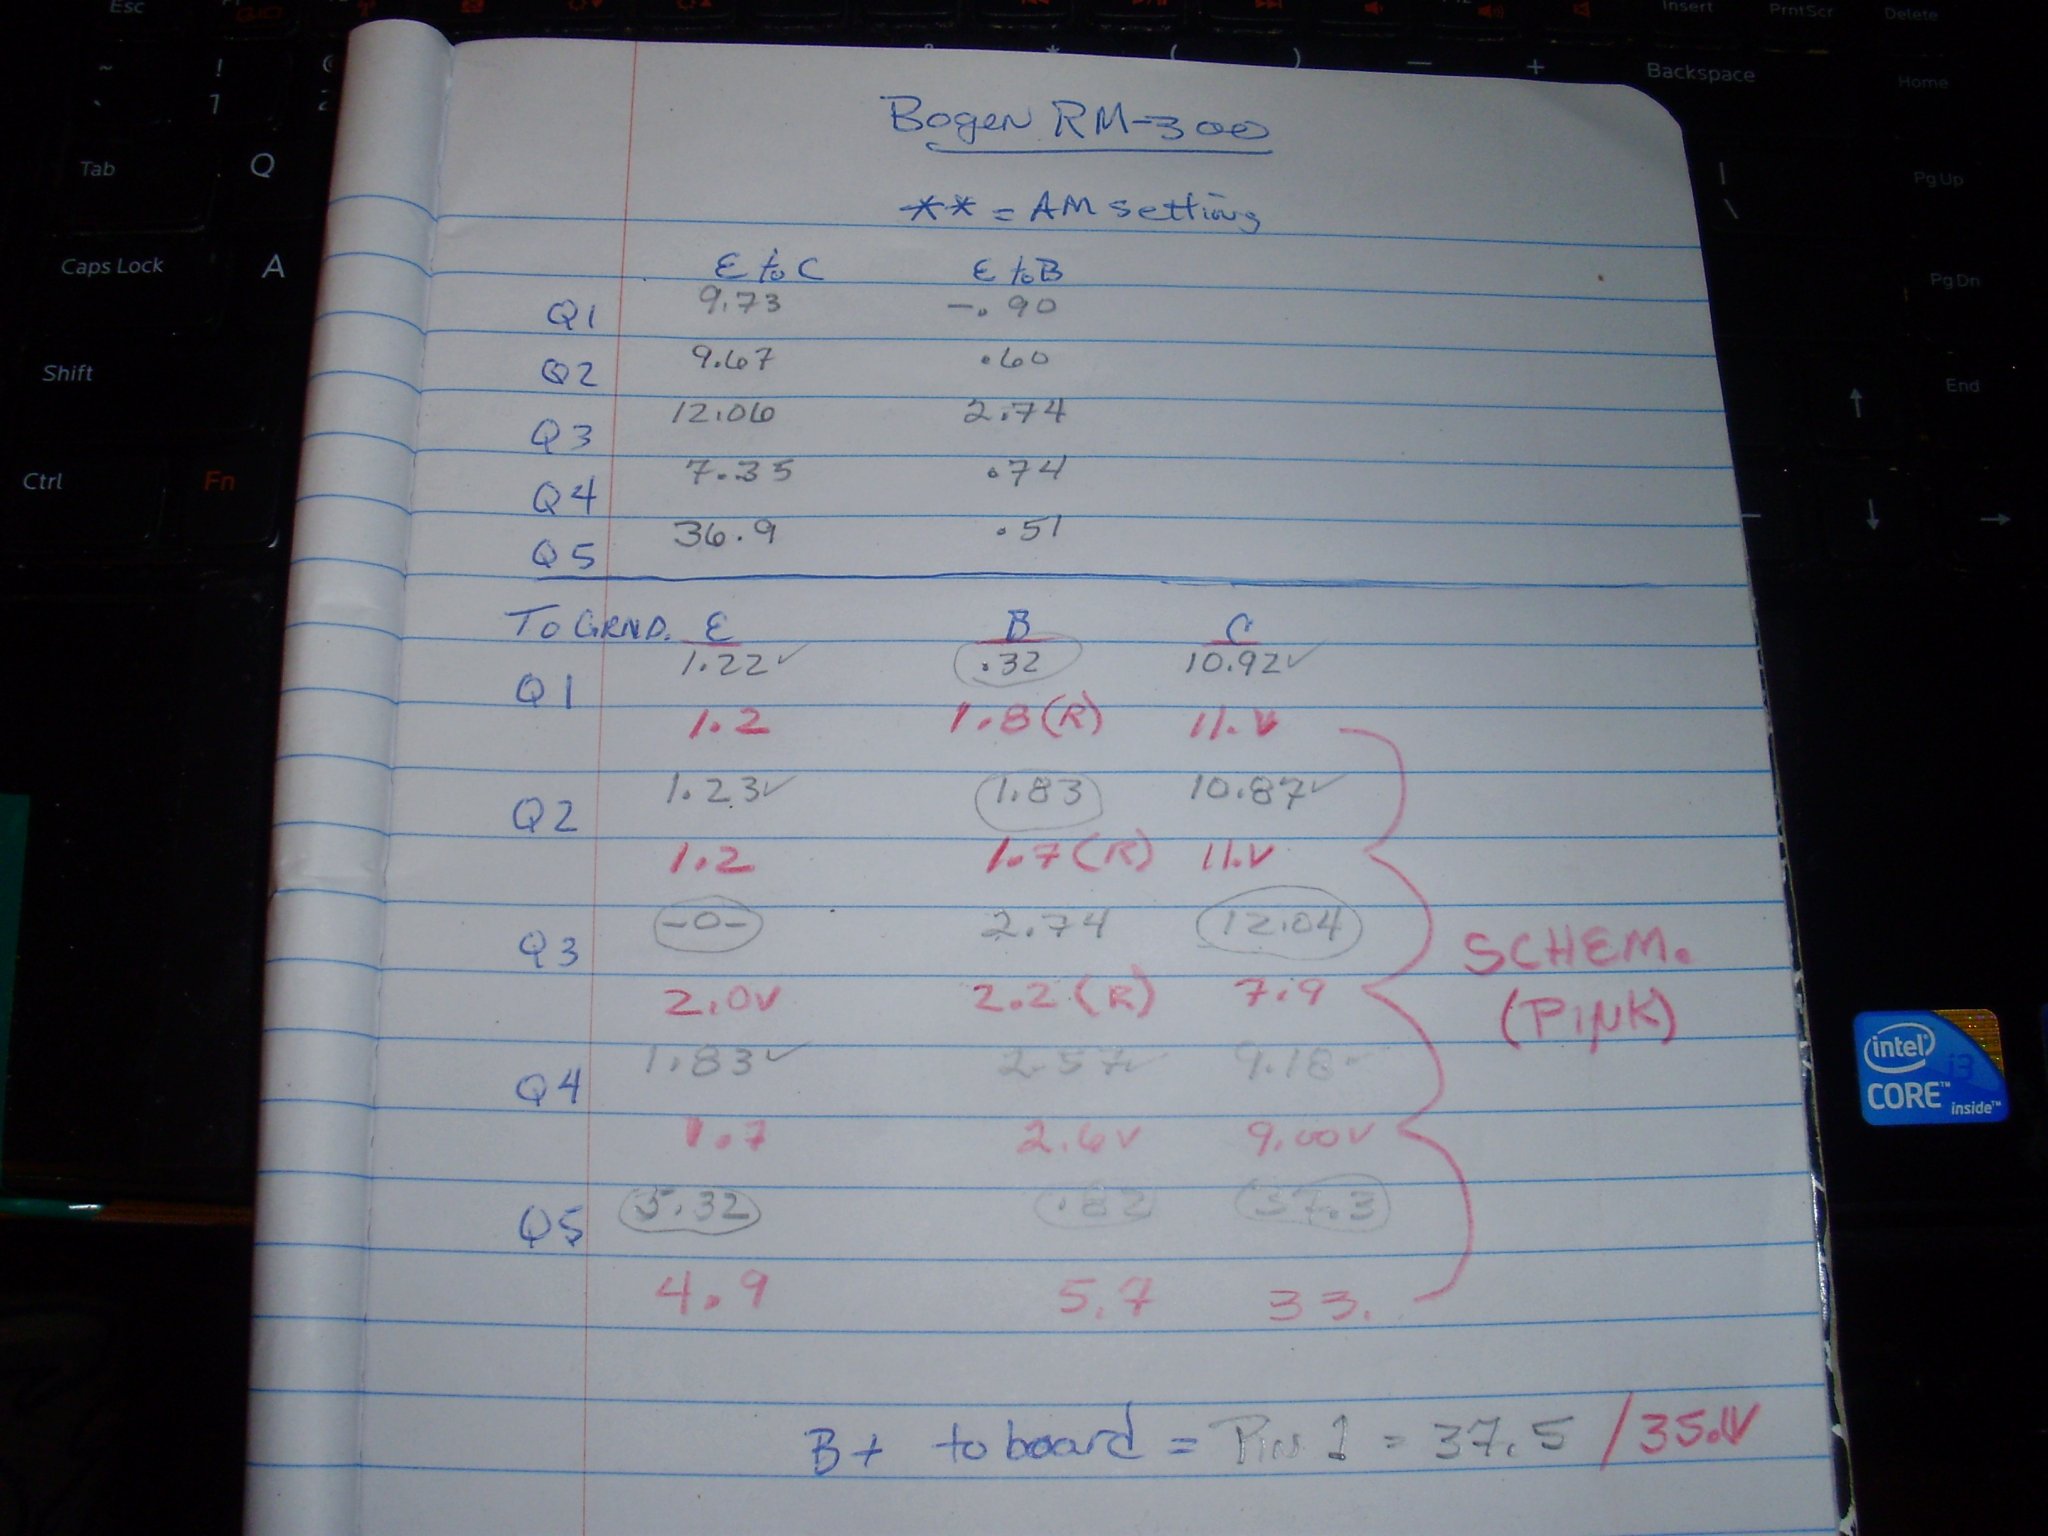 Esc
Insert PrntScr Delete
~ ! * ( ) — + Backspace Home
` 1 2
Tab Q | \ Pg Up
Caps Lock A Pg Dn
Shift End
Ctrl Fn
Bogen RM-300
** = AM setting
E to C E to B
Q1 9.73 -.90
Q2 9.67 .60
Q3 12.06 2.74
Q4 7.35 .74
Q5 36.9 .51
To GRND. E B C
Q1 1.22✓ .32 10.92✓
1.2 1.8(R) 11.V
Q2 1.23✓ 1.83 10.87✓
1.2 1.7(R) 11.V
Q3 -0- 2.74 12.04
2.0V 2.2(R) 7.9
SCHEM.
(PINK)
Q4 1.83✓ 2.57✓ 9.18✓
1.7 2.6V 9.00V
Q5 5.32 .82 37.3
4.9 5.7 33.
B+ to board = Pin 1 = 37.5 / 35.1V
intel i3
CORE™ inside™